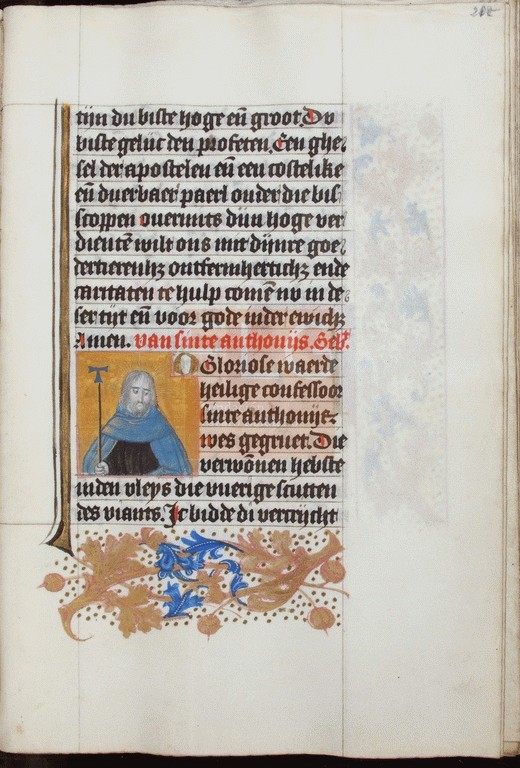 tijn du biste hoge eñ groot. Du
biste gelijc den profeten. Een ghe⸗
sel der apostelen eñ een costelike
eñ duerbaer paerl onder die bis⸗
scoppen ouermits dijn hoge ver
dientē wilt ons mit dijnre goe⸗
dertierenhz ontfermhertichz ende
caritaten te hulp comē nv in de⸗
ser tijt eñ voor gode inder ewichz
Amen. van sinte anthonijs. Geb.
O Gloriose waerde
heilige confessoor
sinte anthonije⸗
wes gegruet. Die
verwōnen hebste
inden vleys die vuerige scutten
des viants. Ic bidde di vercrijcht